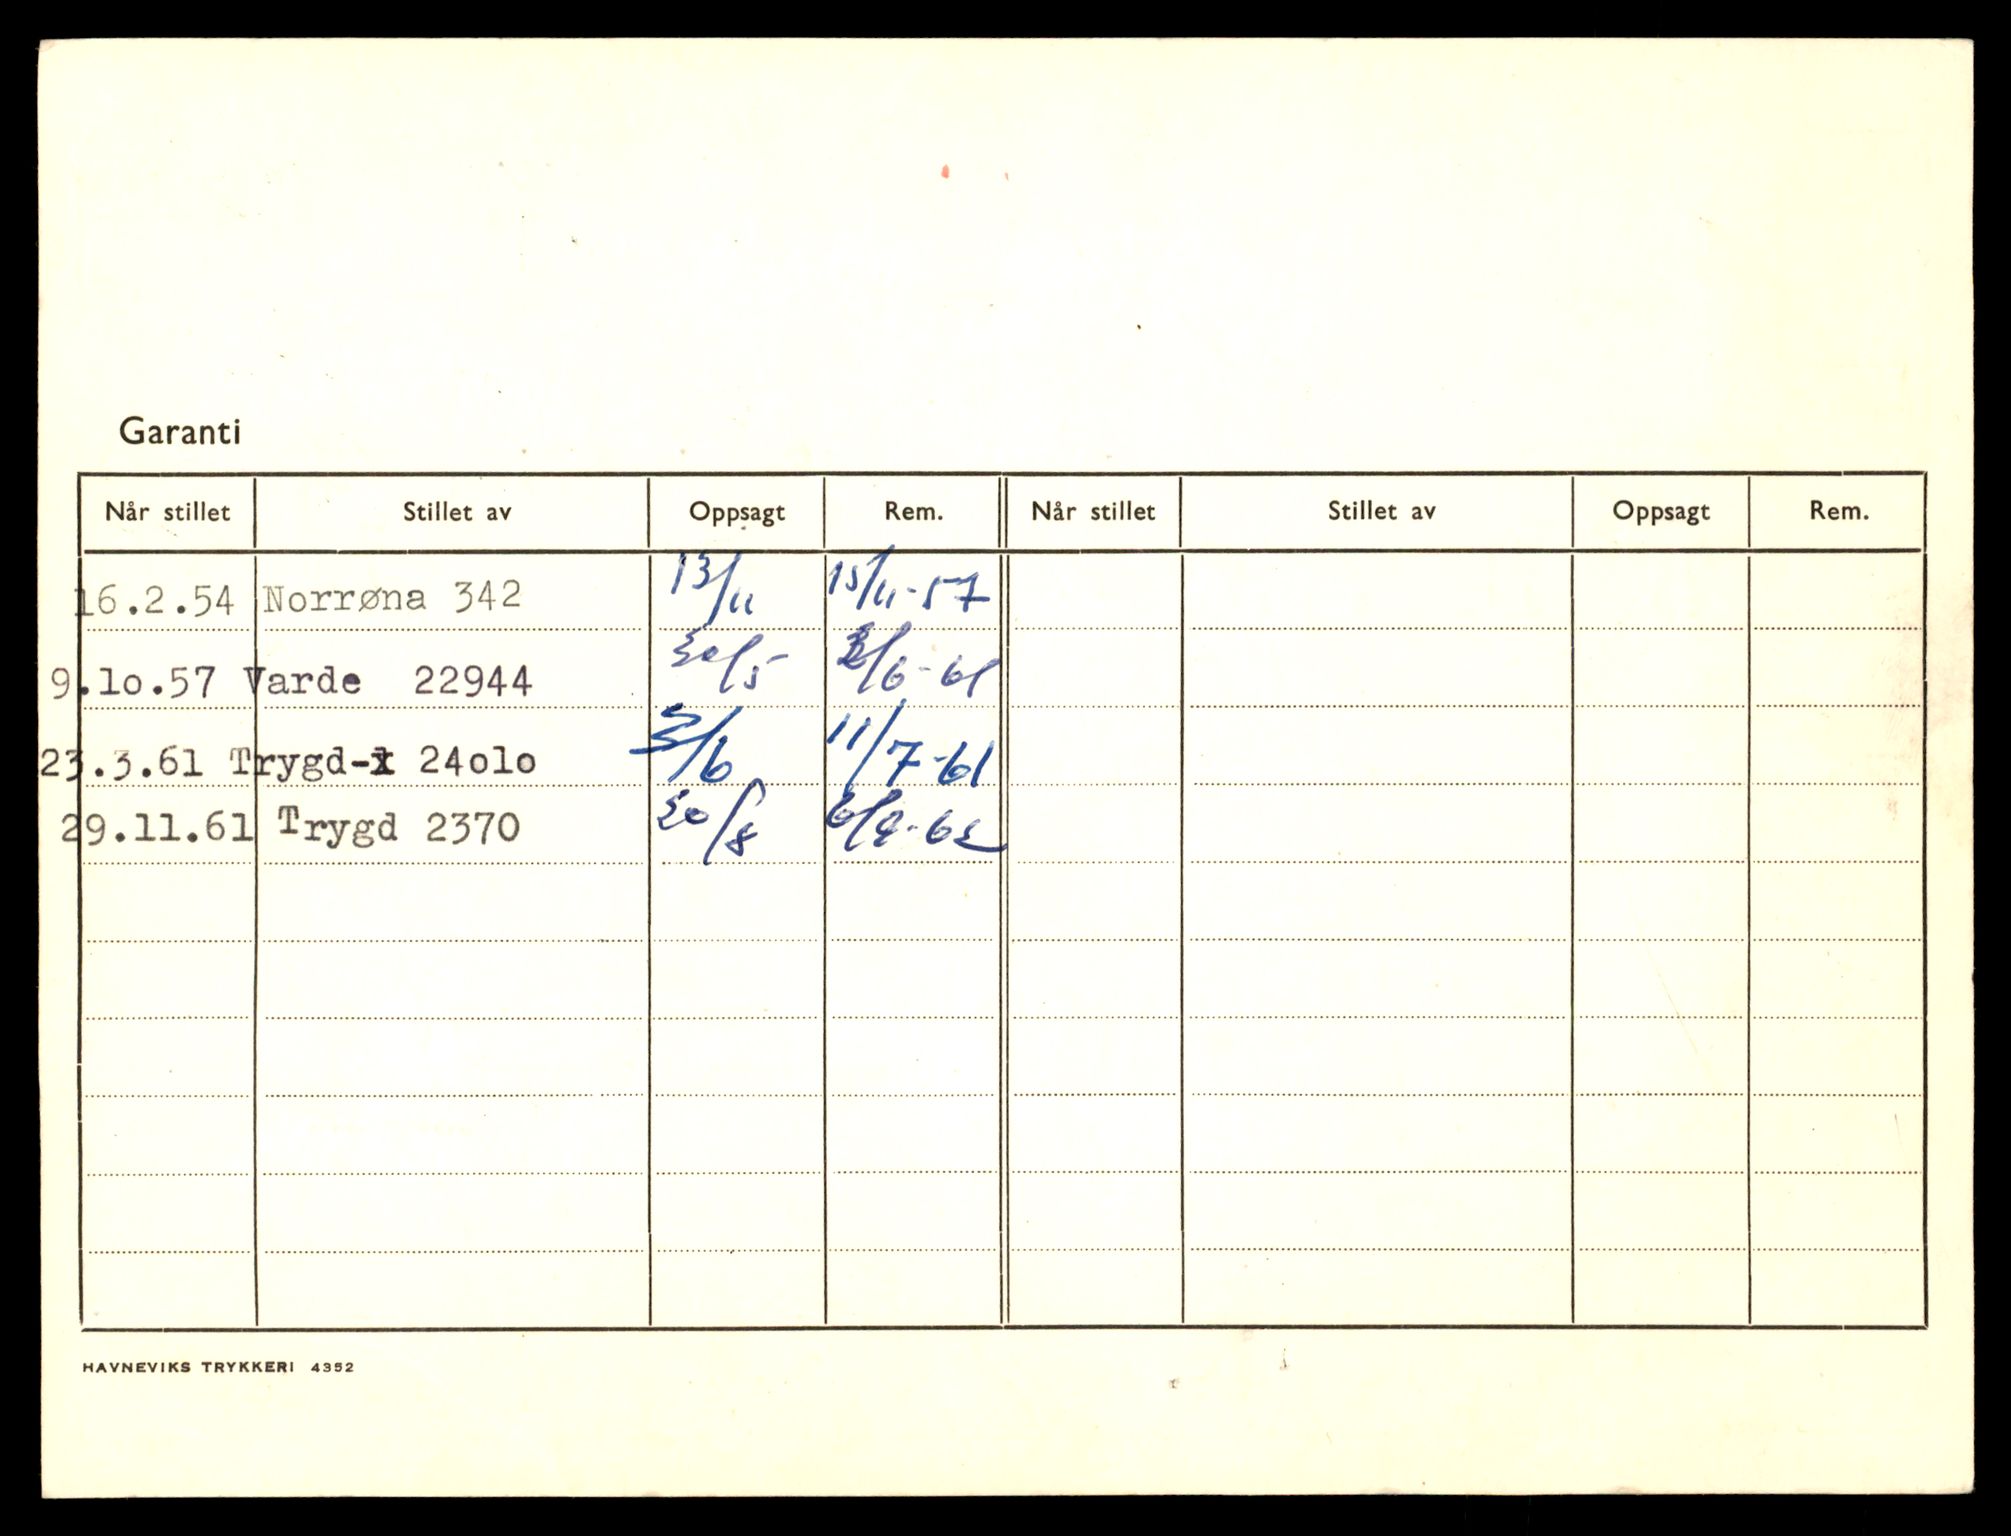 Garanti
Når stillet Stillet av Oppsagt Rem. Når stillet Stillet av Oppsagt Rem.
16.2.54 Norrøna 342 13/11 15/11-57
9.lo.57 Varde 22944 30/5 /6-61
23.3.61 Trygd- 24olo /6 11/7-61
29.11.61 Trygd 2370 30/8 6/9-62
HAVNEVIKS TRYKKERI 4352